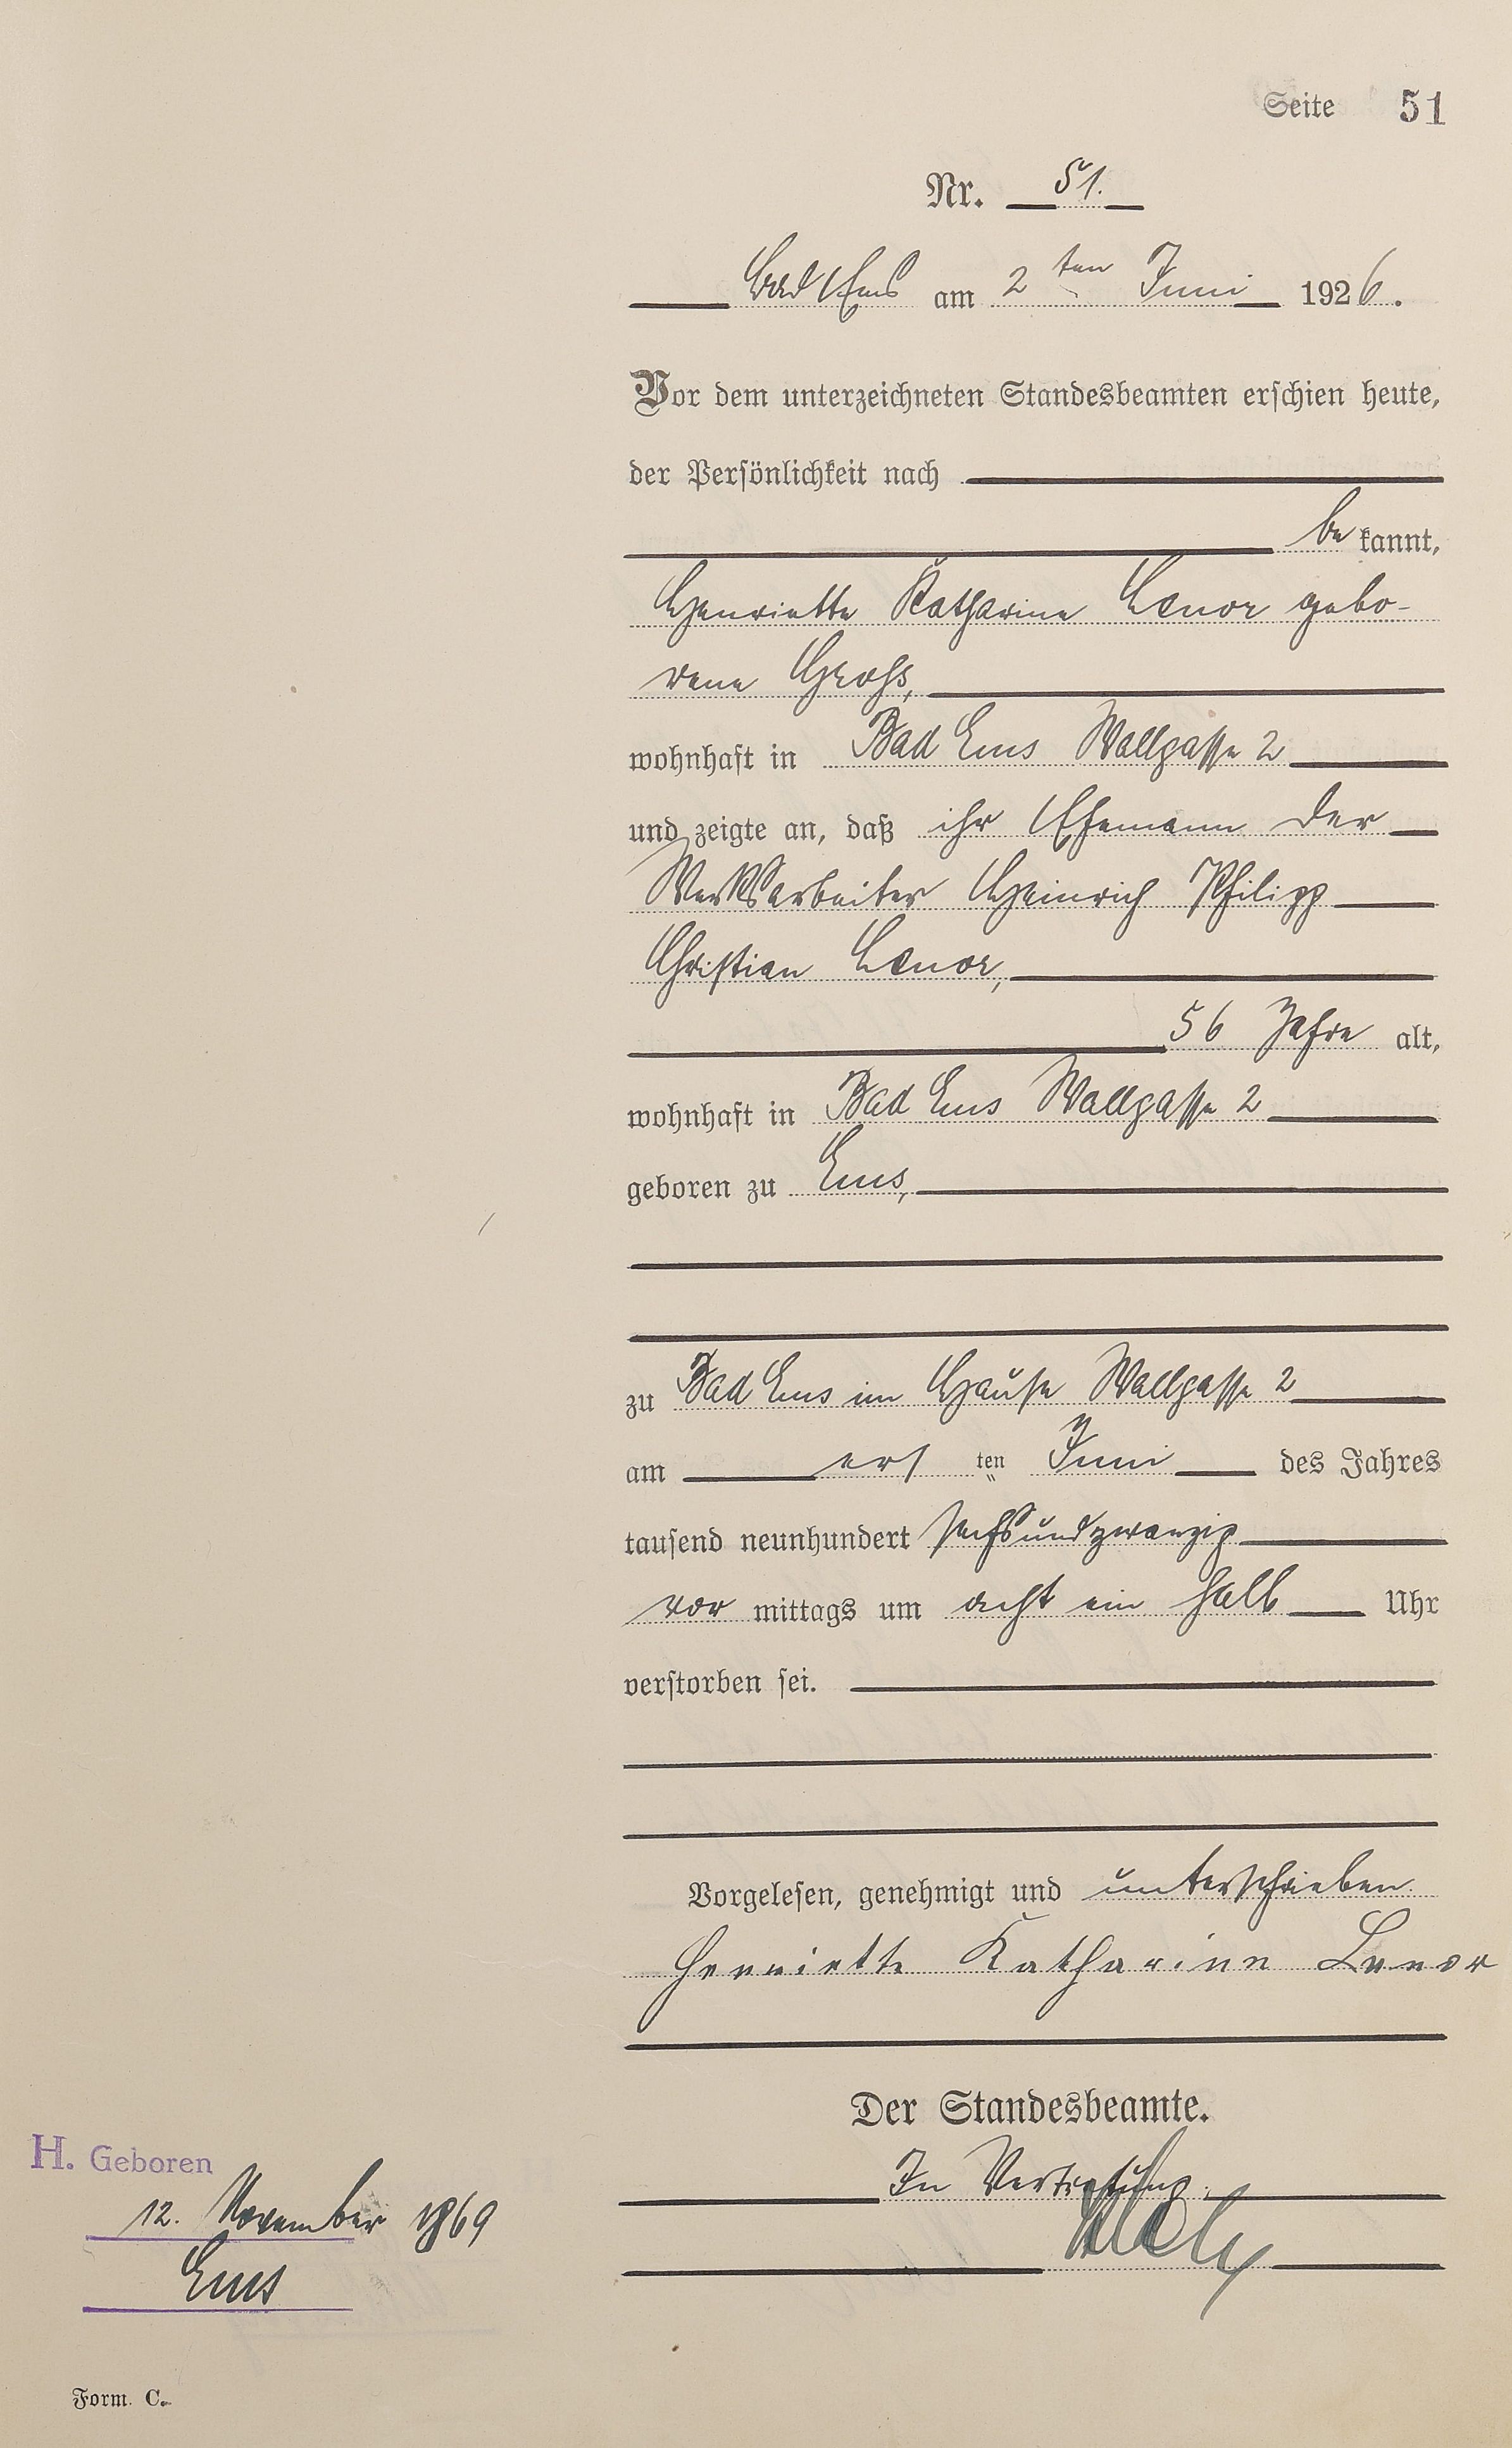 Seite 51
Nr. 51.
Bad Ems am 2 ten Juni 1926.
Vor dem unterzeichneten Standesbeamten erschien heute,
der Persönlichkeit nach
be kannt,
Henriette Katharine Lenor gebo-
rene Groß,
wohnhaft in Bad Ems Wallgasse 2
und zeigte an, daß ihr Ehemann der
Werksarbeiter Heinrich Philipp
Christian Lenor,
56 Jahre alt,
wohnhaft in Bad Ems Wallgasse 2
geboren zu Ems,
zu Bad Ems im Hause Wallgasse 2
am ers ten Juni des Jahres
tausend neunhundert sechsundzwanzig
vor mittags um acht ein halb Uhr
verstorben sei.
Vorgelesen, genehmigt und unterschrieben
Henriette Katharine Lenor
Der Standesbeamte.
In Vertretung.
H. Geboren
12. November 1869
Ems
Form. C.